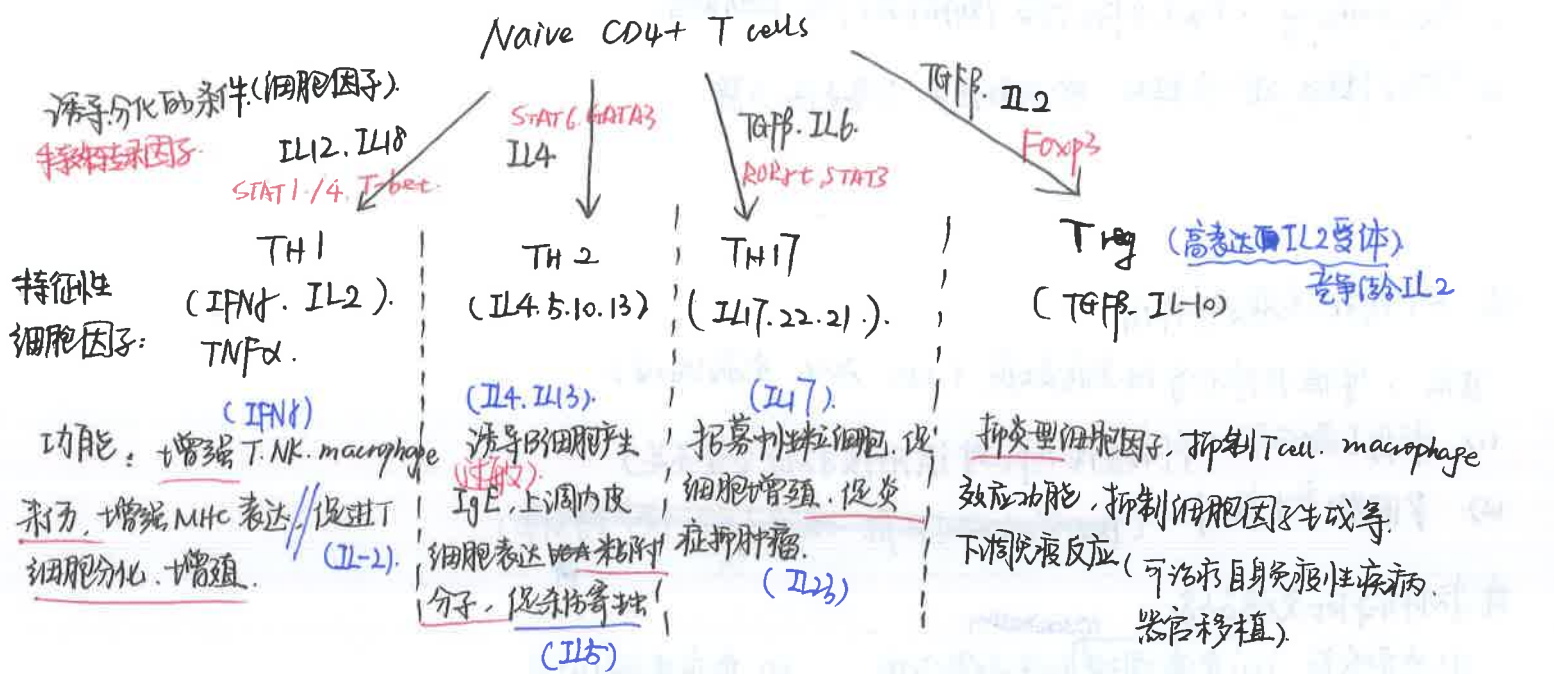 Naive CD4+ T cells
诱导分化的条件(细胞因子).
特征性转录因子.
IL12. IL18
STAT1./4. T-bet.
STAT6. GATA3
IL4
TGFβ. IL6.
RORγt, STAT3
TGFβ. IL2
Foxp3
特征性
细胞因子:
TH1
(IFNγ. IL2).
TNFα.
TH2
(IL4.5.10.13)
TH17
(IL17.22.21.).
Treg (高表达IL2受体)
竞争结合IL2
(TGFβ. IL-10)
功能:
(IFNγ)
增强T.NK.macrophage
杀伤, 增强MHC表达,//促进T
细胞分化、增殖.
(IL-2).
(IL4.IL13).
诱导B细胞产生
(过敏).
IgE, 上调内皮
细胞表达粘附
分子, 促杀伤寄生虫
(IL5)
(IL17).
招募中性粒细胞, 促
细胞增殖、促炎
症抑肿瘤.
(IL23)
抑炎型细胞因子, 抑制Tcell. macrophage
效应功能, 抑制细胞因子生成等.
下调免疫反应(可治疗自身免疫性疾病.
器官移植).